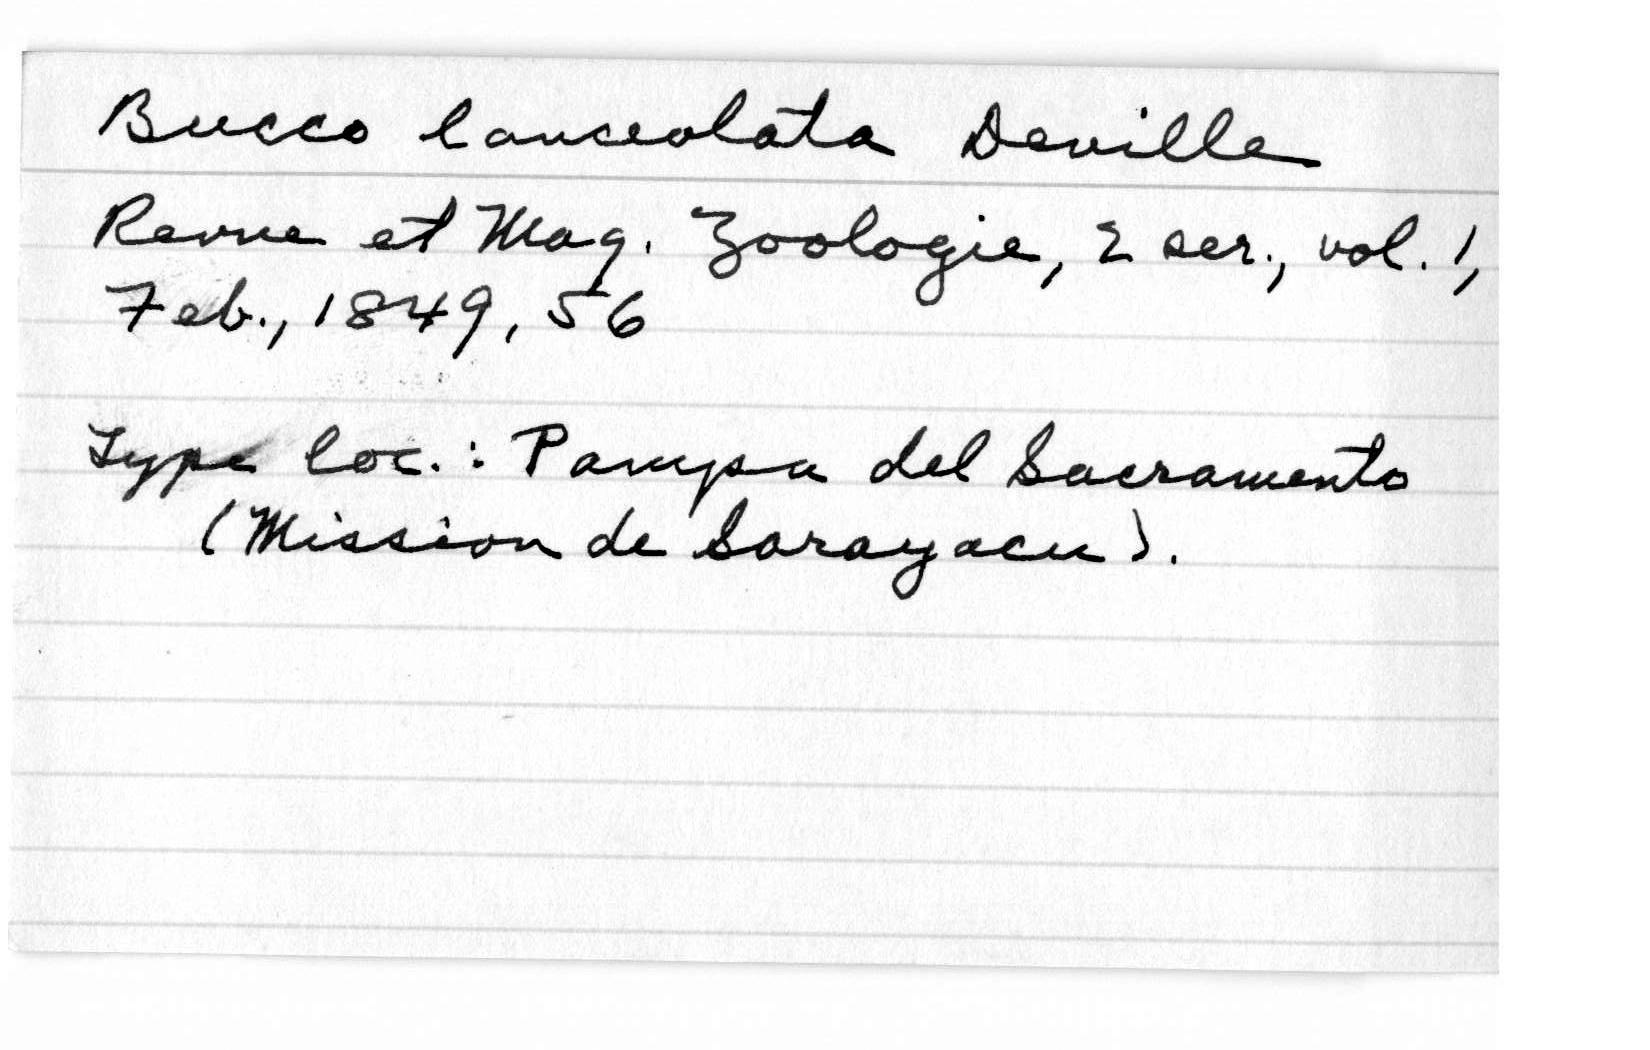 Bucco lanceolata Deville
Revue et Mag. Zoologie, 2 ser., vol. 1,
Feb., 1849, 56
Type loc.: Pampa del Sacramento
(Mission de Sarayacu).